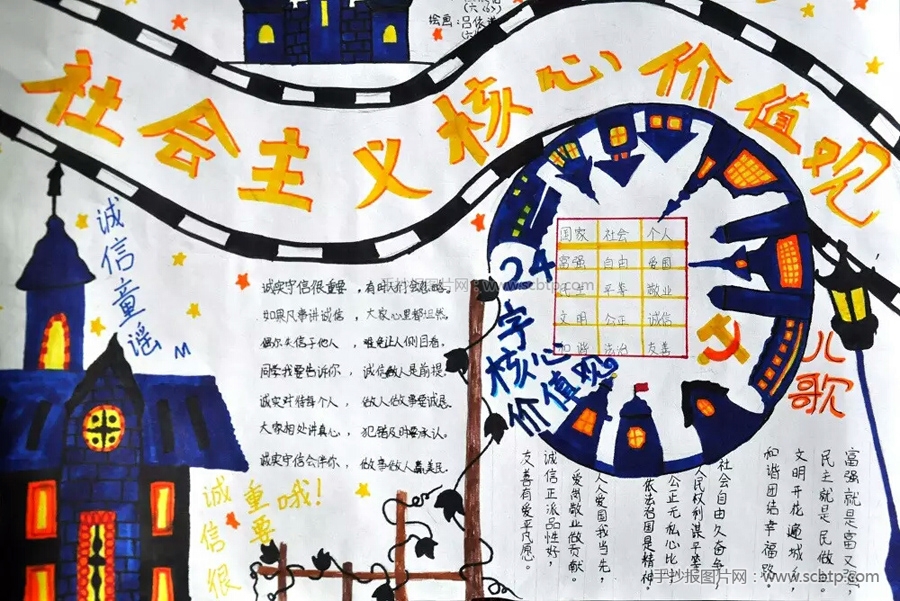 (六（6）)
绘画：吕依
社会主义核心价值观
诚信童谣
诚实守信很重要，有时人们会忽略。
如果凡事讲诚信，大家心里都坦然。
偶尔失信于他人，难免让人侧目看。
同学我要告诉你，诚信做人是前提。
诚实对待每个人，做人做故事要诚恳。
大家相处讲真心，犯错及时要承认。
诚实守信会伴你，做事做人最美民。
诚信很
重要
哦！
24字核心价值观
国家 社会 个人
富强 自由 爱国
平等 敬业
文明 公正 诚信
和谐 法治 友善
儿歌
富强就是富又强，
民主就是民做
文明开花遍城乡，
和谐团结幸福路。
社会自由久奋斗，
人民权利谋平等，
公正无私心比
依法治国是精神。
人人爱国我当先，
爱岗敬业做贡献。
诚信正派品性好，
友善有爱平凡愿。
手抄报图片网：www.scbtp.com
手抄报图片网：www.scbtp.com